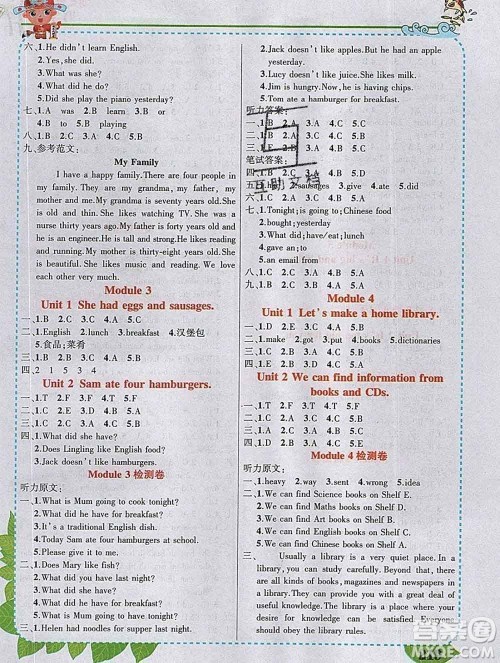 六、1.He didn't learn English.
2.Yes, she did.
3.What was she?
4.What did he do?
5.Did she play the piano yesterday?
七、1.A 2.was 3.learn 4.B 5.or
6.B 7.to 8.B 9.playing
八、1.B 2.A 3.C 4.B 5.C
九、参考范文:
My Family
I have a happy family. There are four people in
my family. They are my grandma, my father, my
mother and me. My grandma is seventy years old. She
is old and thin. She likes watching TV. She was a
nurse thirty years ago. My father is forty years old.
he is an engineer. He is tall and strong. My mother is
thirty-eight years old. She is short and beautiful.
She likes music and reading. We love
each other very much.
Module 3
Unit 1 She had eggs and sausages.
一、1.B 2.C 3.C 4.A 5.B
二、1.English 2.lunch 3.breakfast 4.汉堡包
5.食品;菜肴
四、2 1 5 3 4
Unit 2 Sam ate four hamburgers.
一、1.T 2.F 3.T 4.T 5.F
二、1.C 2.E 3.D 4.B 5.A
三、1.A 2.C 3.B 4.A 5.C
四、1.What did she have?
2.Does Lingling like English food?
3.Jack doesn't like hamburgers.
Module 3 检测卷
听力原文:
一、1.What is Mum going to cook tonight?
2.What did he have for breakfast?
3.It's a traditional English dish.
4.Today Sam ate four hamburgers.
5.Please give it to me.
二、1.Does Mary like fish?
2.What did you have last night?
3.What did he have for breakfast?
4.Did they have lunch?
5.What did you have last night?
三、1.Helen had noodles for supper last night.
2.Jack doesn't like apples. But he ate an apple
yesterday.
3.Lucy doesn't like juice. She likes milk.
4.Jim is hungry. Now, he is having chips.
5.Tom ate a hamburger for breakfast.
听力答案:
一、1.B 2.A 3.A 4.C 5.B
二、1.B 2.A 3.B 4.A 5.C
三、1.E 2.B 3.D 4.C 5.A
笔试答案:
四、1.B 2.A 3.A 4.C 5.B
五、1.hot 2.sausages 3.give 4.ate 5.had
六、1.C 2.B 3.A 4.B 5.C
七、1.Tonight;is going to;Chinese food
2.bought;yesterday
3.What did;have/eat;lunch
4.gave an;to
5.an email from
八、1.C 2.B 3.A 4.B 5.C
九、1.B 2.C 3.A 4.A 5.A
Module 4
Unit 1 Let's make a home library.
一、1.D 2.A 3.E 4.B 5.C
二、1.make 2.got 3.put 4.books 5.dictionaries
三、1.F 2.F 3.T 4.T 5.F
四、1.D 2.A 3.E 4.B 5.C
Unit 2 We can find information from
books and CDs.
一、1.T 2.F 3.T 4.F 5.T
二、1.D 2.A 3.E 4.C 5.B
三、1.way 2.heavy 3.sent 4.wrong 5.idea
Module 4 检测卷
听力原文:
二、1.We can find Science books on Shelf E.
2.We can find Maths books on Shelf D.
3.We can find Art books on Shelf C.
4.We can find English books on Shelf B.
5.We can find Chinese books on Shelf A.
三、Usually a library is a very quiet place. In a
library, you can study carefully. Beyond that, there
are all kinds of books, magazines and newspapers in
a library. You can read them and learn information
from them. The library is a place where your
desire for knowledge can be satisfied. Everyone
should obey the rules of the library.
互助文档
答案圈
MXQE.COM